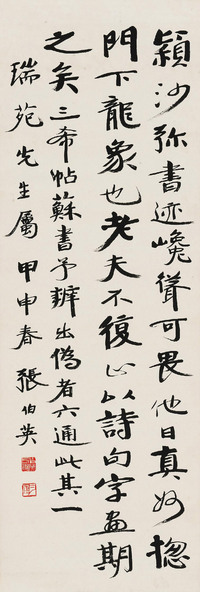 穎沙弥書迹巉聳可畏他日真妙揔
門下龍象也老夫不復止以詩句字畫期
之矣三希帖蘇書予辨出偽者六通此其一
瑞苑先生屬 甲申春 張伯英